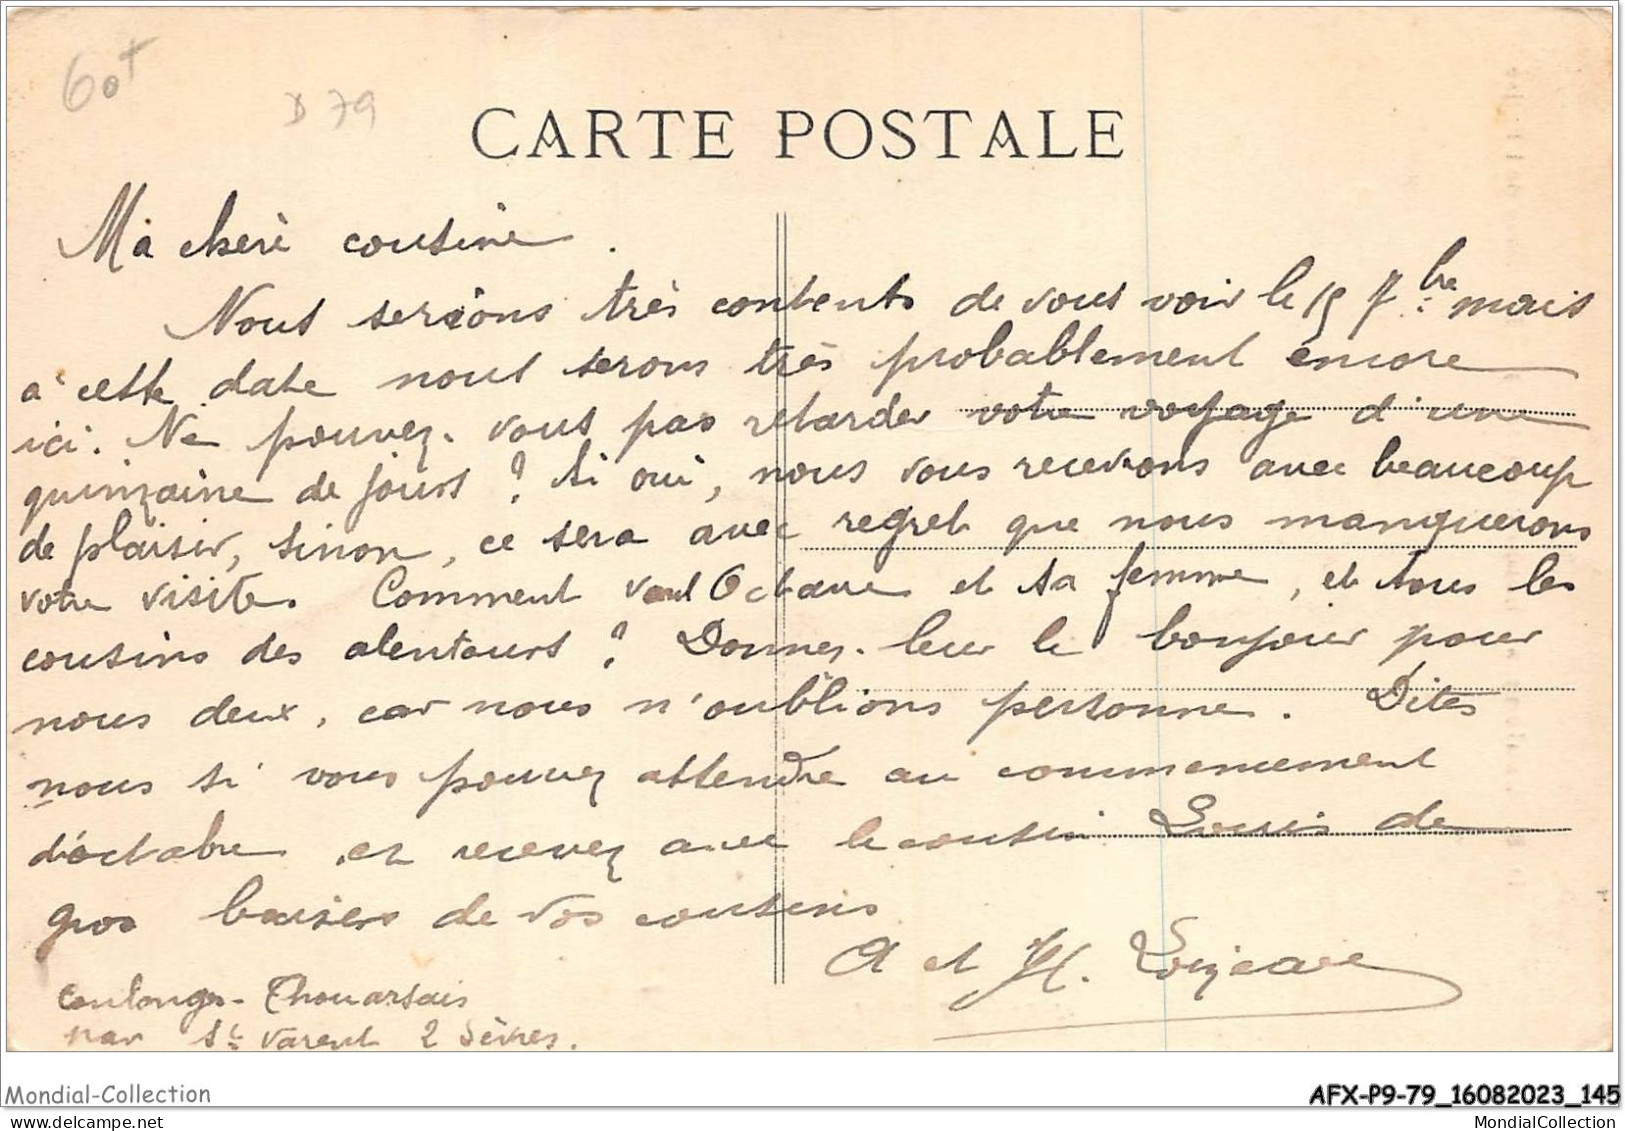 60t
D 79
CARTE POSTALE
Ma chère cousine.
Nous serions très contents de vous voir le 15 7bre mais
à cette date nous serons très probablement encore
ici. Ne pouvez-vous pas retarder votre voyage d'une
quinzaine de jours ? Si oui, nous vous recevrons avec beaucoup
de plaisir, sinon, ce sera avec regret que nous manquerons
votre visite. Comment vont Octave et sa femme, et tous les
cousins des alentours ? Donnez-leur le bonjour pour
nous deux, car nous n'oublions personne. Dites
nous si vous pouvez attendre au commencement
d'octobre et recevez avec le cousin Louis de
gros baisers de vos cousins
A et H. Loizeau
Coulonges-Thouarsais
par St Varent 2 Sèvres.
Mondial-Collection
AFX-P9-79_16082023_145
MondialCollection.com
MondialCollection